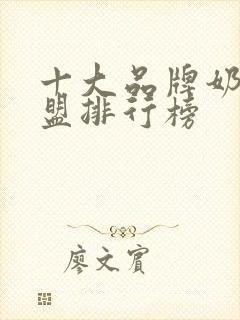 十大品牌奶
盟排行榜
廖文宾